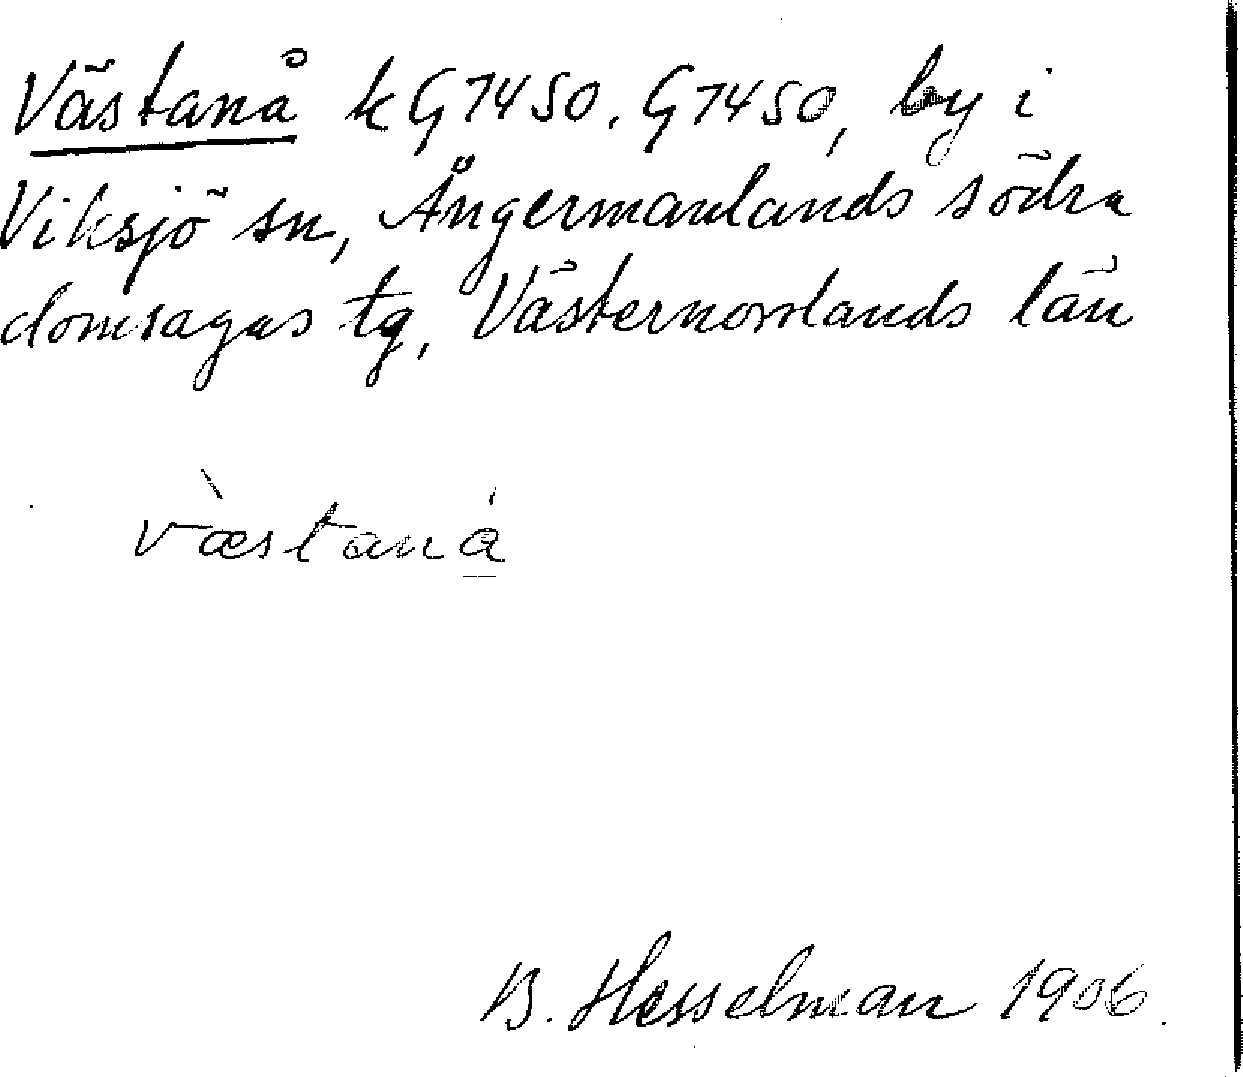 Västanå kG7450. G7450, by i
Viksjö sn, Ångermanlands södra
domsagas tg, Västernorrlands län
v̀æstaná̱
B. Hesselman 1906.